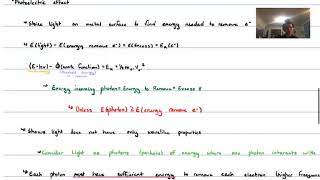 Photoelectric effect
↳ Shine light on metal surface to find energy needed to remove e⁻
↳ E(light) - E(energy remove e⁻) = E(excess) = Eₖ(e⁻)
(E=hν) - Φ(work function) = Eₖ = ½mₑvₑ²
↳ Energy incoming photon = Energy to Remove + Excess E
↳ Unless E(photon) ≥ E(energy remove e⁻)
↳ Shows light does not have only wavelike properties
↳ Consider light as photons (particles) of energy where one photon interacts with
↳ Each photon must have sufficient energy to remove each electron (higher frequency